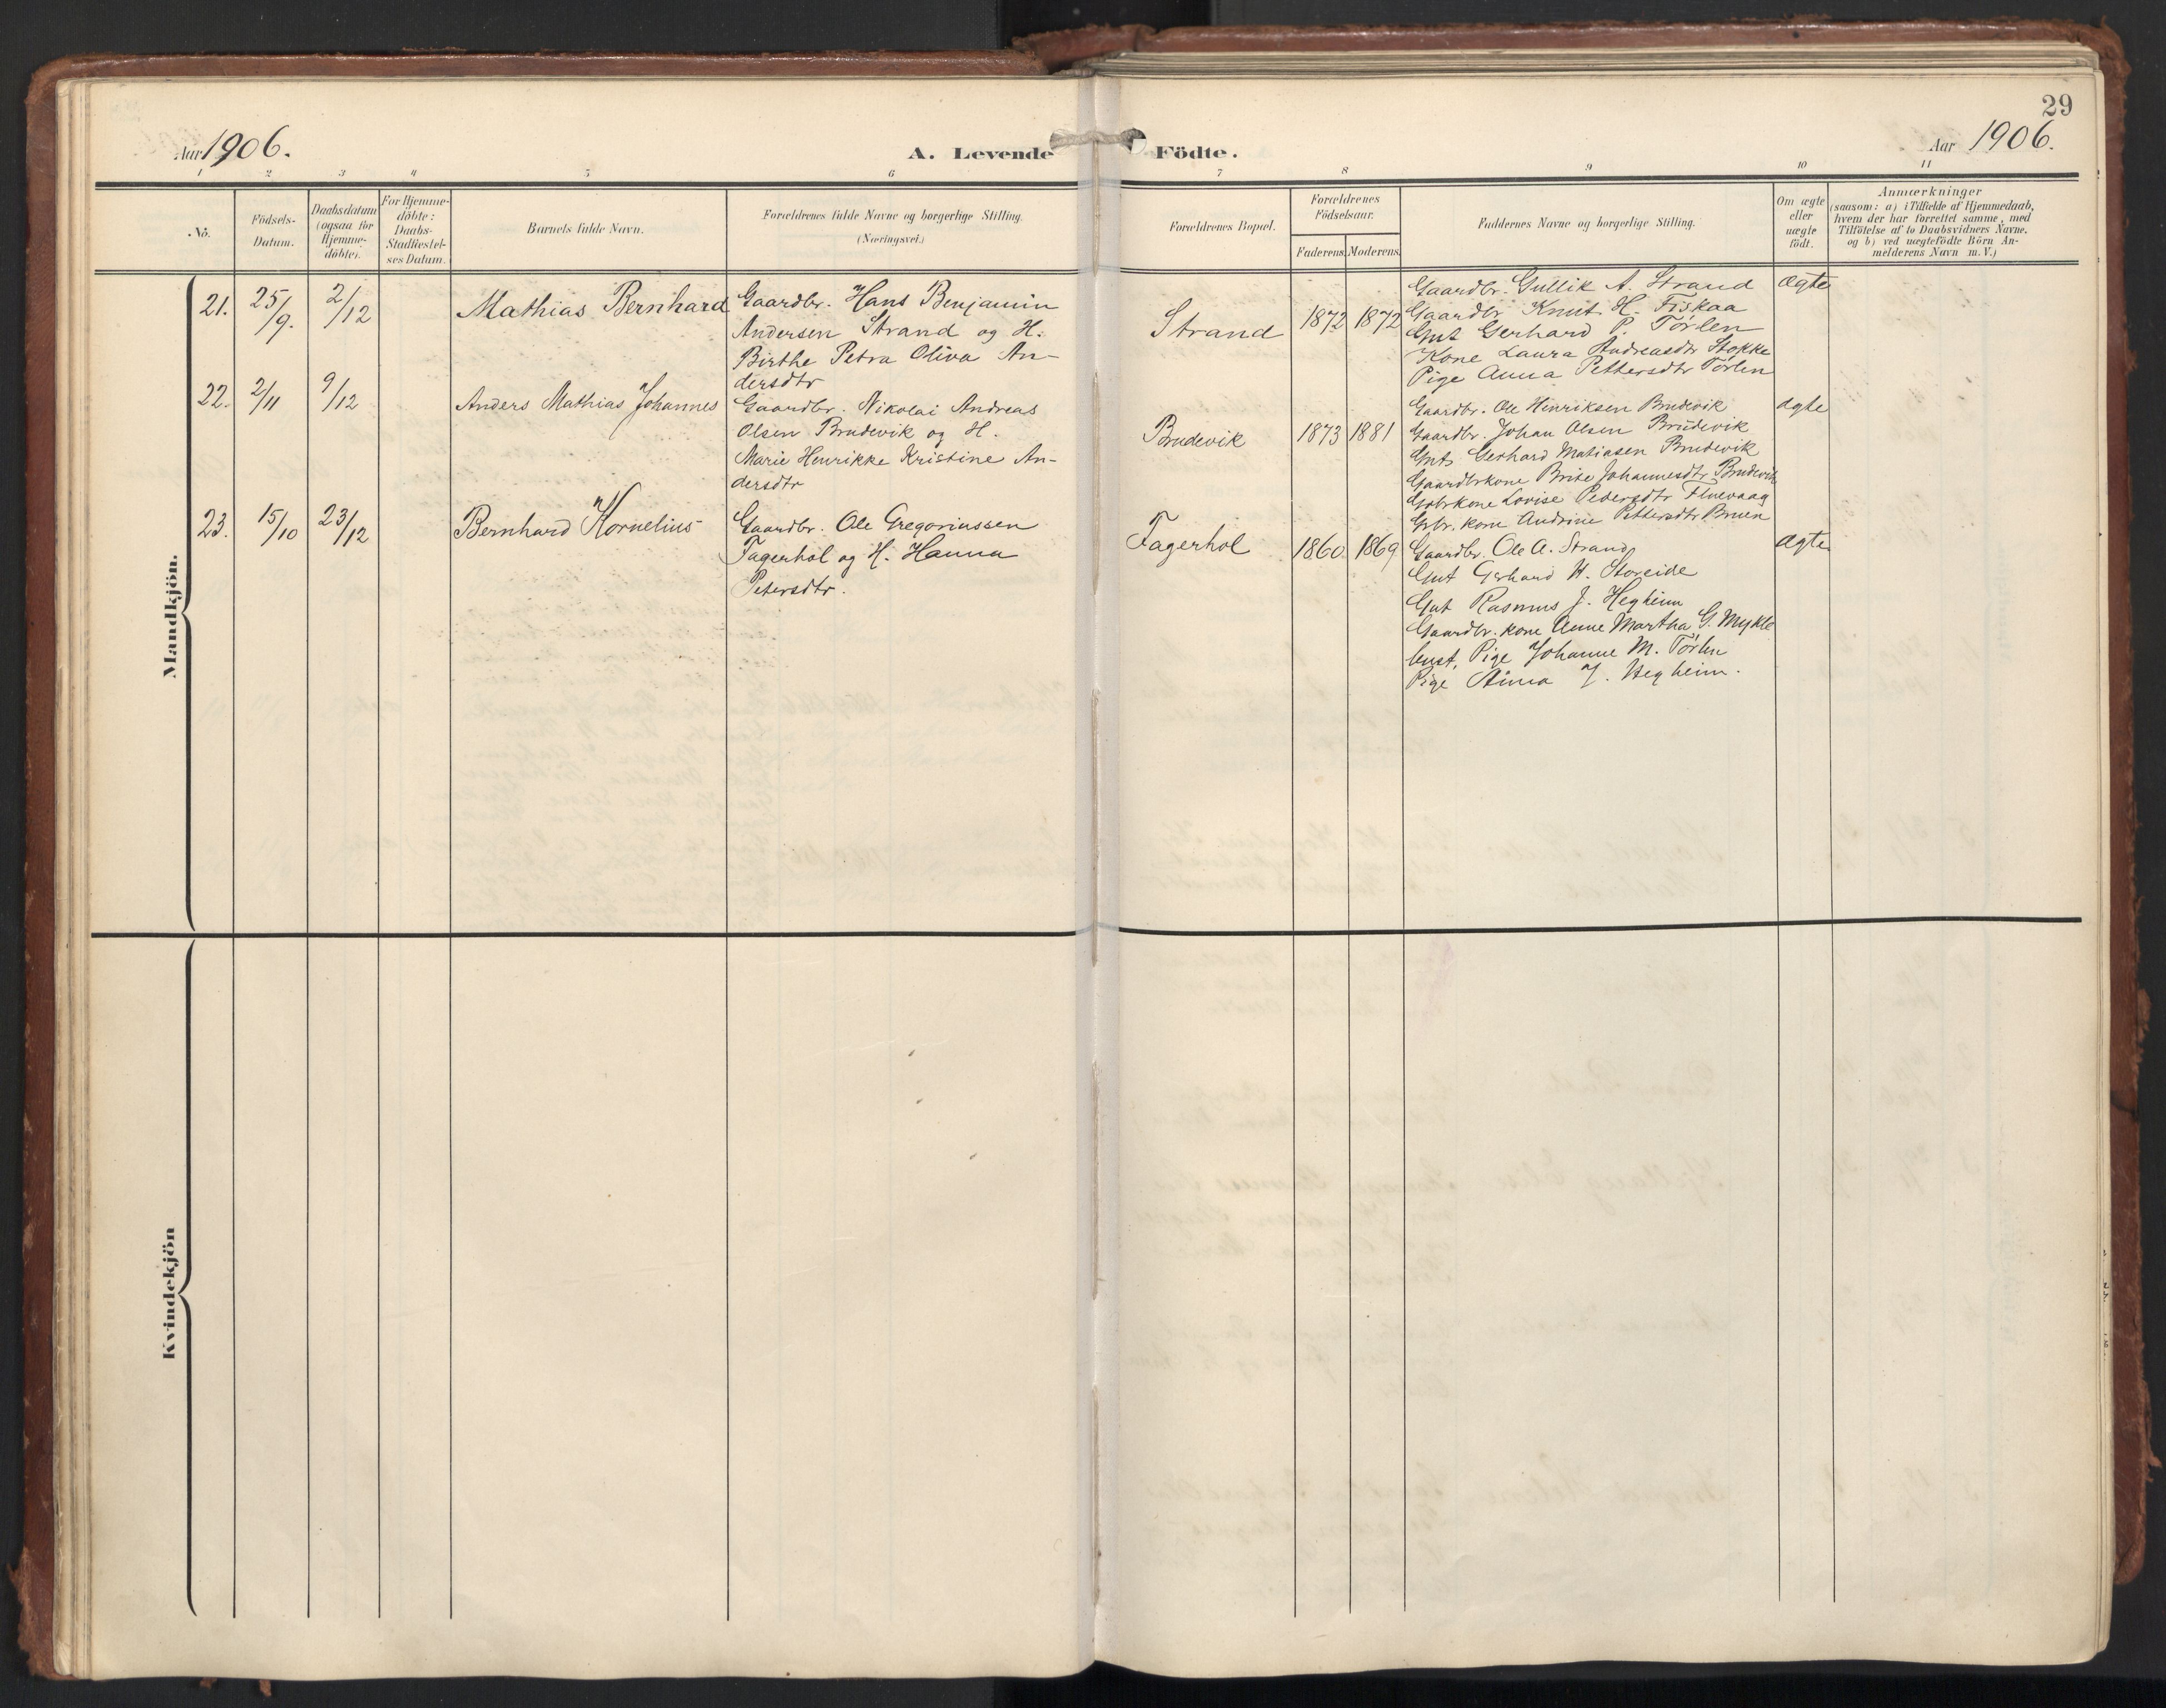 29
Aar 1906.
A. Levende Födte.
Aar 1906.
1 2 3 4 5 6 7 8 9 10 11
No.
Födsels-
Datum.
Daabsdatum
(ogsaa for
Hjemme-
döbte).
For Hjemme-
döbte:
Daabs-
Stadfæstel-
ses Datum.
Barnets fulde Navn.
Forældrenes fulde Navne og borgerlige Stilling.
(Næringsvei.)
Forældrenes Bopæl.
Forældrenes
Födselsaar.
Faderens. Moderens.
Faddernes Navne og borgerlige Stilling.
Om ægte
eller
uægte
födt.
Anmærkninger
(saasom: a) i Tilfælde af Hjemmedaab,
hvem der har forrettet samme, med
Tilföielse af to Daabsvidners Navne,
og b) ved uægtefödte Börn An-
melderens Navn m. V.)
Mandkjön.
21. 25/9. 2/12 Mathias Bernhard
Gaardbr. Hans Benjamin
Andersen Strand og H.
Birthe Petra Oliva An-
dersdtr
Strand 1872 1872
Gaardbr. Gullik A. Strand
Gaardbr Knut H. Fiskaa
Gut Gerhard P. Törlen
Kone Laura Andreasdtr Stokke
Pige Anna Pettersdtr Törlen
ægte
22. 2/11 9/12 Anders Mathias Johannes
Gaardbr. Nikolai Andreas
Olsen Brudevik og H.
Marie Henrikke Kristine An-
dersdtr
Brudevik 1873 1881
Gaardbr. Ole Henriksen Brudevik
Gaardbr. Johan Olsen Brudevik
Gut Gerhard Matiasen Brudevik
Gaardbrkone Brite Johannesdtr Brudevik
Gdbrkone Lovise Pedersdtr Fluevaag
Gbr. kone Andrine Pettersdtr Bruen
ægte
23. 15/10 23/12 Bernhard Kornelius
Gaardbr. Ole Gregoriussen
Fagerhol og H. Hanna
Petersdtr.
Fagerhol 1860 1869
Gaardbr. Ole A. Strand
Gut Gerhard H. Storeide
Gut Rasmus J. Hegheim
Gaardbr. kone Anne Martha G. Mykle
bust, Pige Johanne M. Törlen
Pige J. Hegheim.
ægte
Kvindekjön